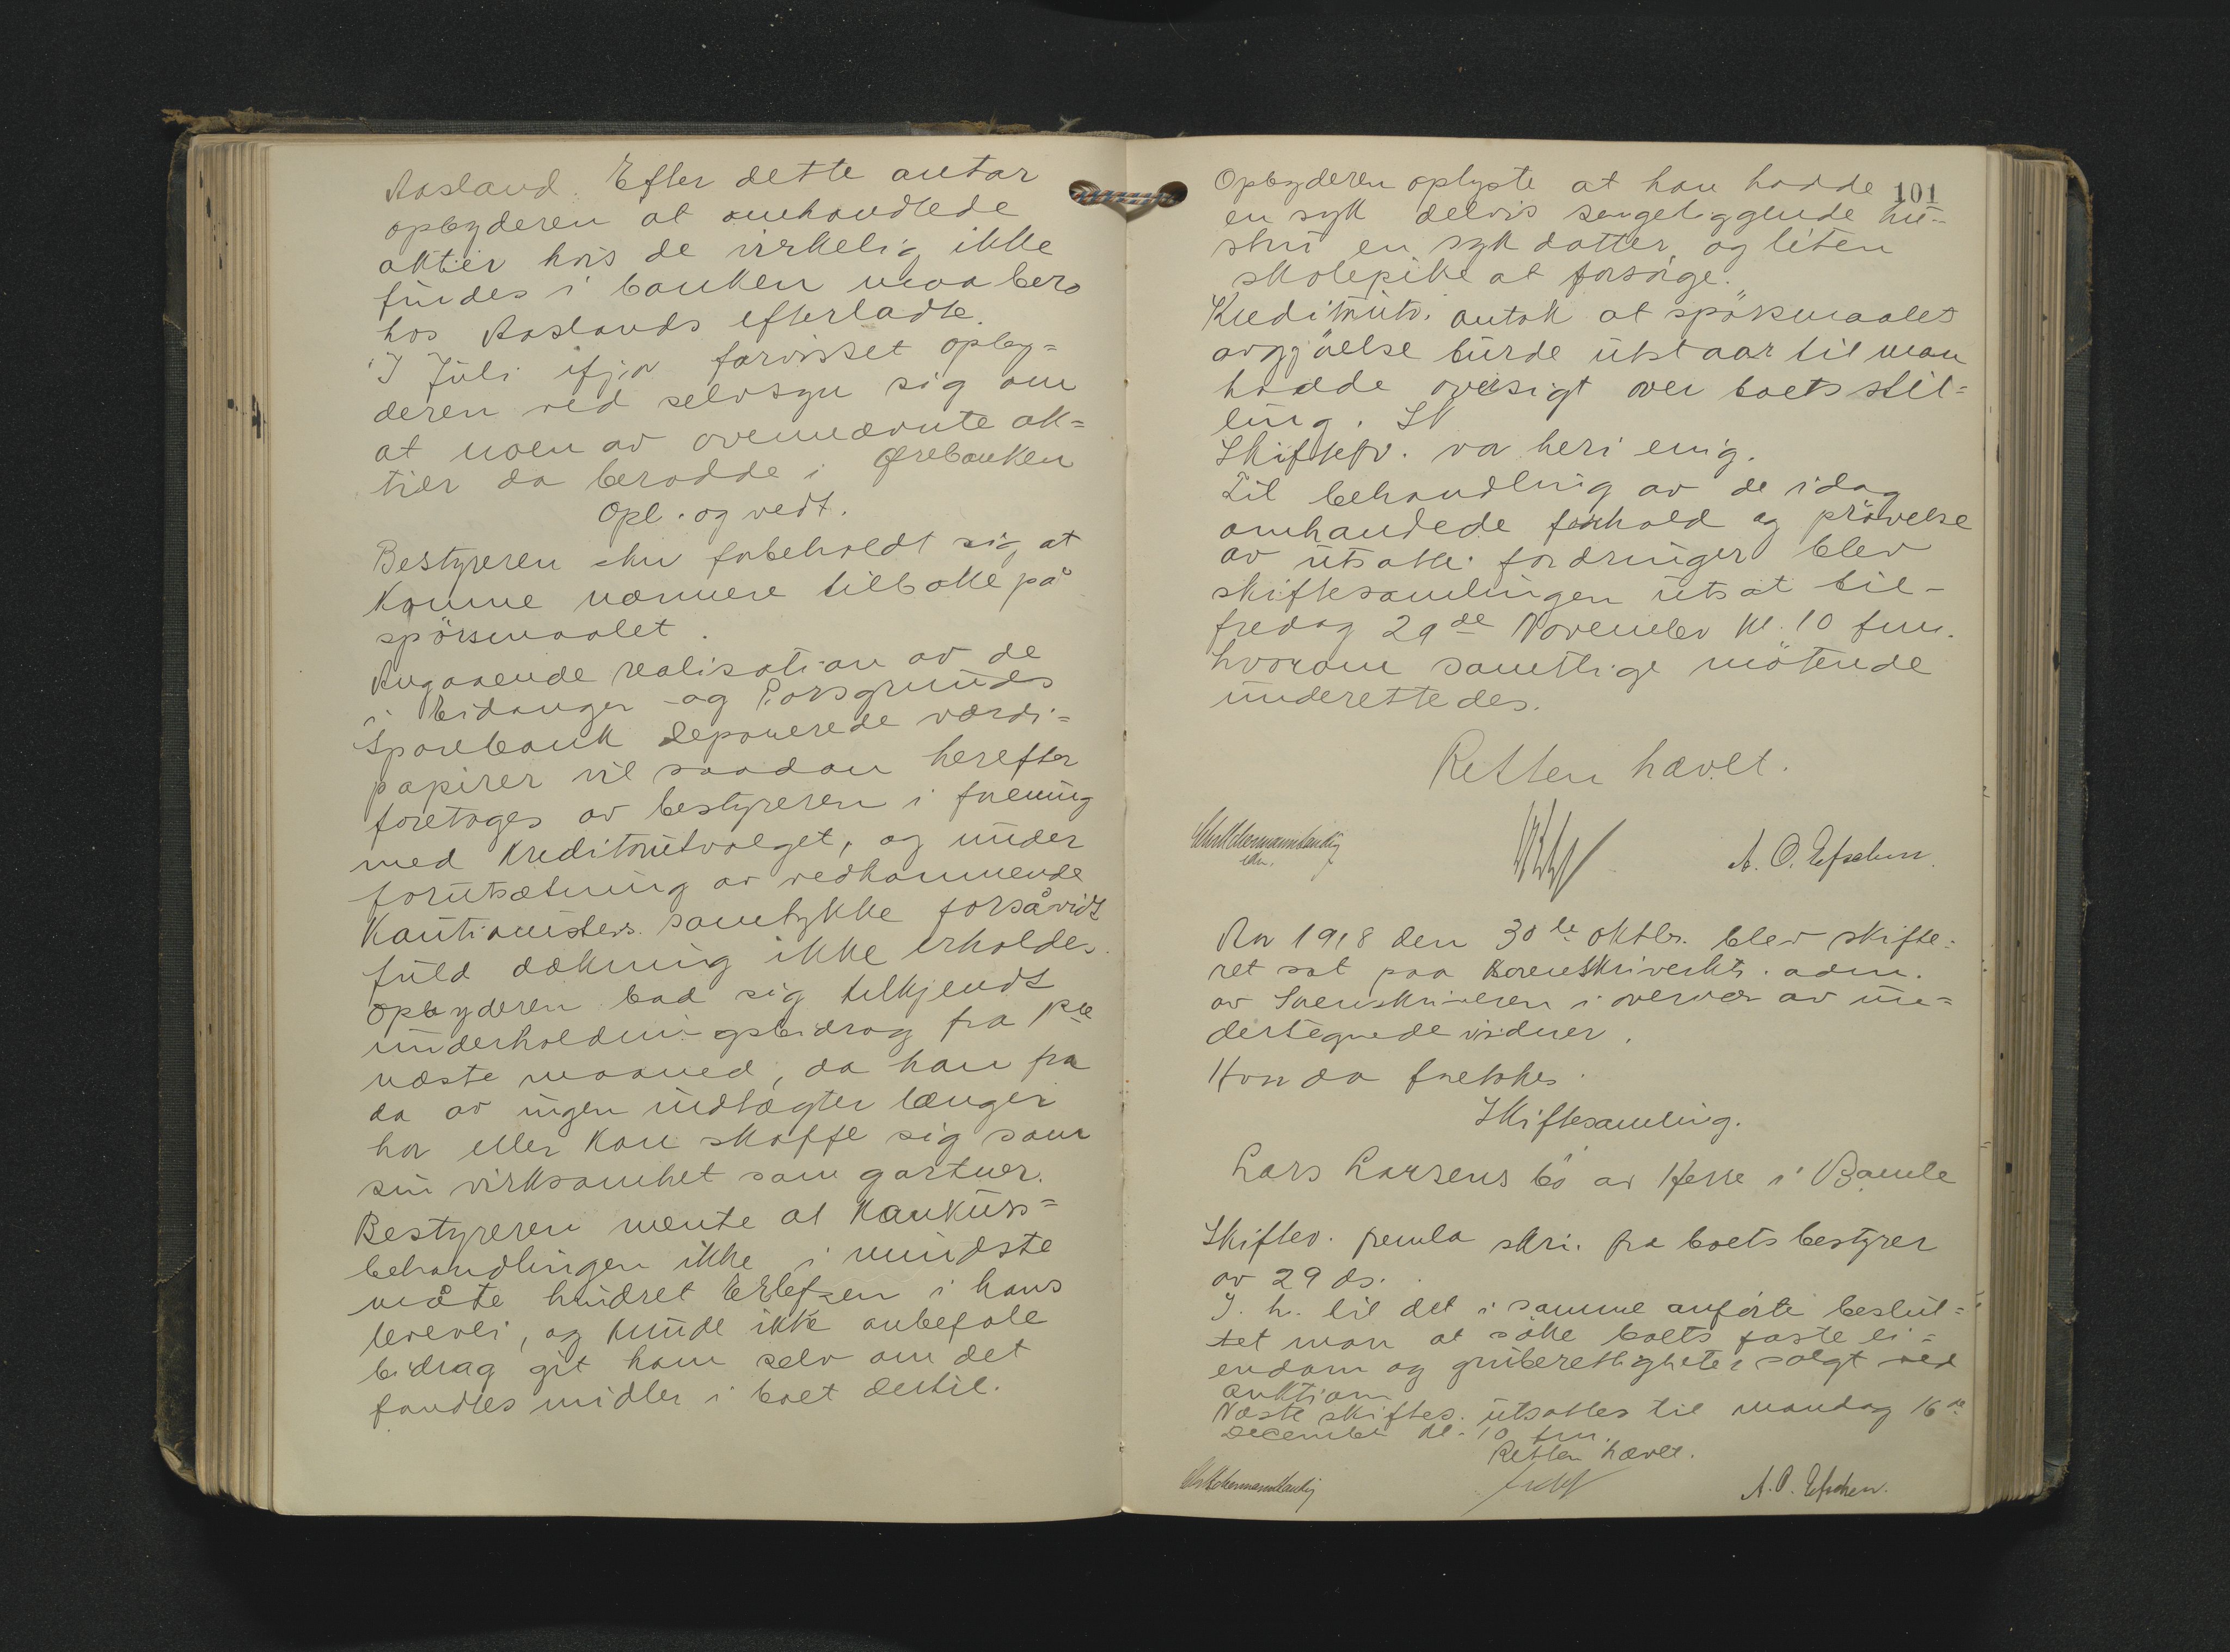 Aasland. Efter dette antar
opbyderen at omhandlede
aktier hvis de virkelig ikke
findes i banken maa bero
hos Aaslands efterladte.
I Juli ifjor forvisset opby=
deren ved selvsyn sig om
at noen av ovennævnte ak=
tier da berodde i Ørebanken
Opl. og vedt.
Bestyreren forbeholdt sig at
komme nærmere tilbake på
spörsmaalet.
Angaaende realisation av de
i Eidanger og Porsgrunds
Sparebank deponerede værdi=
papirer vil saadan herefter
foretages av bestyreren i forening
med kreditorutvalget, og under
forutsætning av vedkommende
kautionisters samtykke forsåvidt
fuld dækning ikke erholdes.
Opbyderen bad sig tilkjendt
underholdningsbidrag fra
næste maaned, da han fra
da av ingen indtægter længer
har eller kan skaffe sig som
sin virksomhet som gartner.
Bestyreren mente at konkurs=
behandlingen ikke i mindste
måte hindret Ellefsen i hans
levevei, og kunde ikke anbefale
bidrag git ham selv om det
fandtes midler i boet dertil.
Opbyderen oplyste at han hadde 101
en syk delvis sengeliggende hu=
stru en syk datter, og liten
skolepike at forsörge.
Kreditorutv. antok at spörsmaalets
avgjöelse burde utstaar til man
hadde oversigt over boets stil=
ling. Sk
Skiftefv. var heri enig.
Til behandling av de idag
omhandlede forhold og prövelse
av utsatte fordringer blev
skiftesamlingen utsat til
fredag 29de November kl. 10 fm.
hvorom samtlige mötende
underettedes.
Retten hævet.
A. O. Ellefsen.
Aar 1918 den 30te oktbr. blev skifte=
ret sat paa Sorenskriverkts. adm.
av Sorenskriveren i overvær av un=
dertegnede vidner.
Hvor da foretokes.
Skiftesamling.
Lars Larsens bo av Herre i Bamle
Skiftev. fremla skri. fra boets bestyrer
av 29 ds.
I. h. til det i samme anförte beslut=
tet man at söke boets faste ei=
endom og gruberettigheter solgt ved
auktion
Næste skiftes. utsattes til mandag 16de
December kl. 10 fm.
Retten hævet.
A. O. Ellefsen.